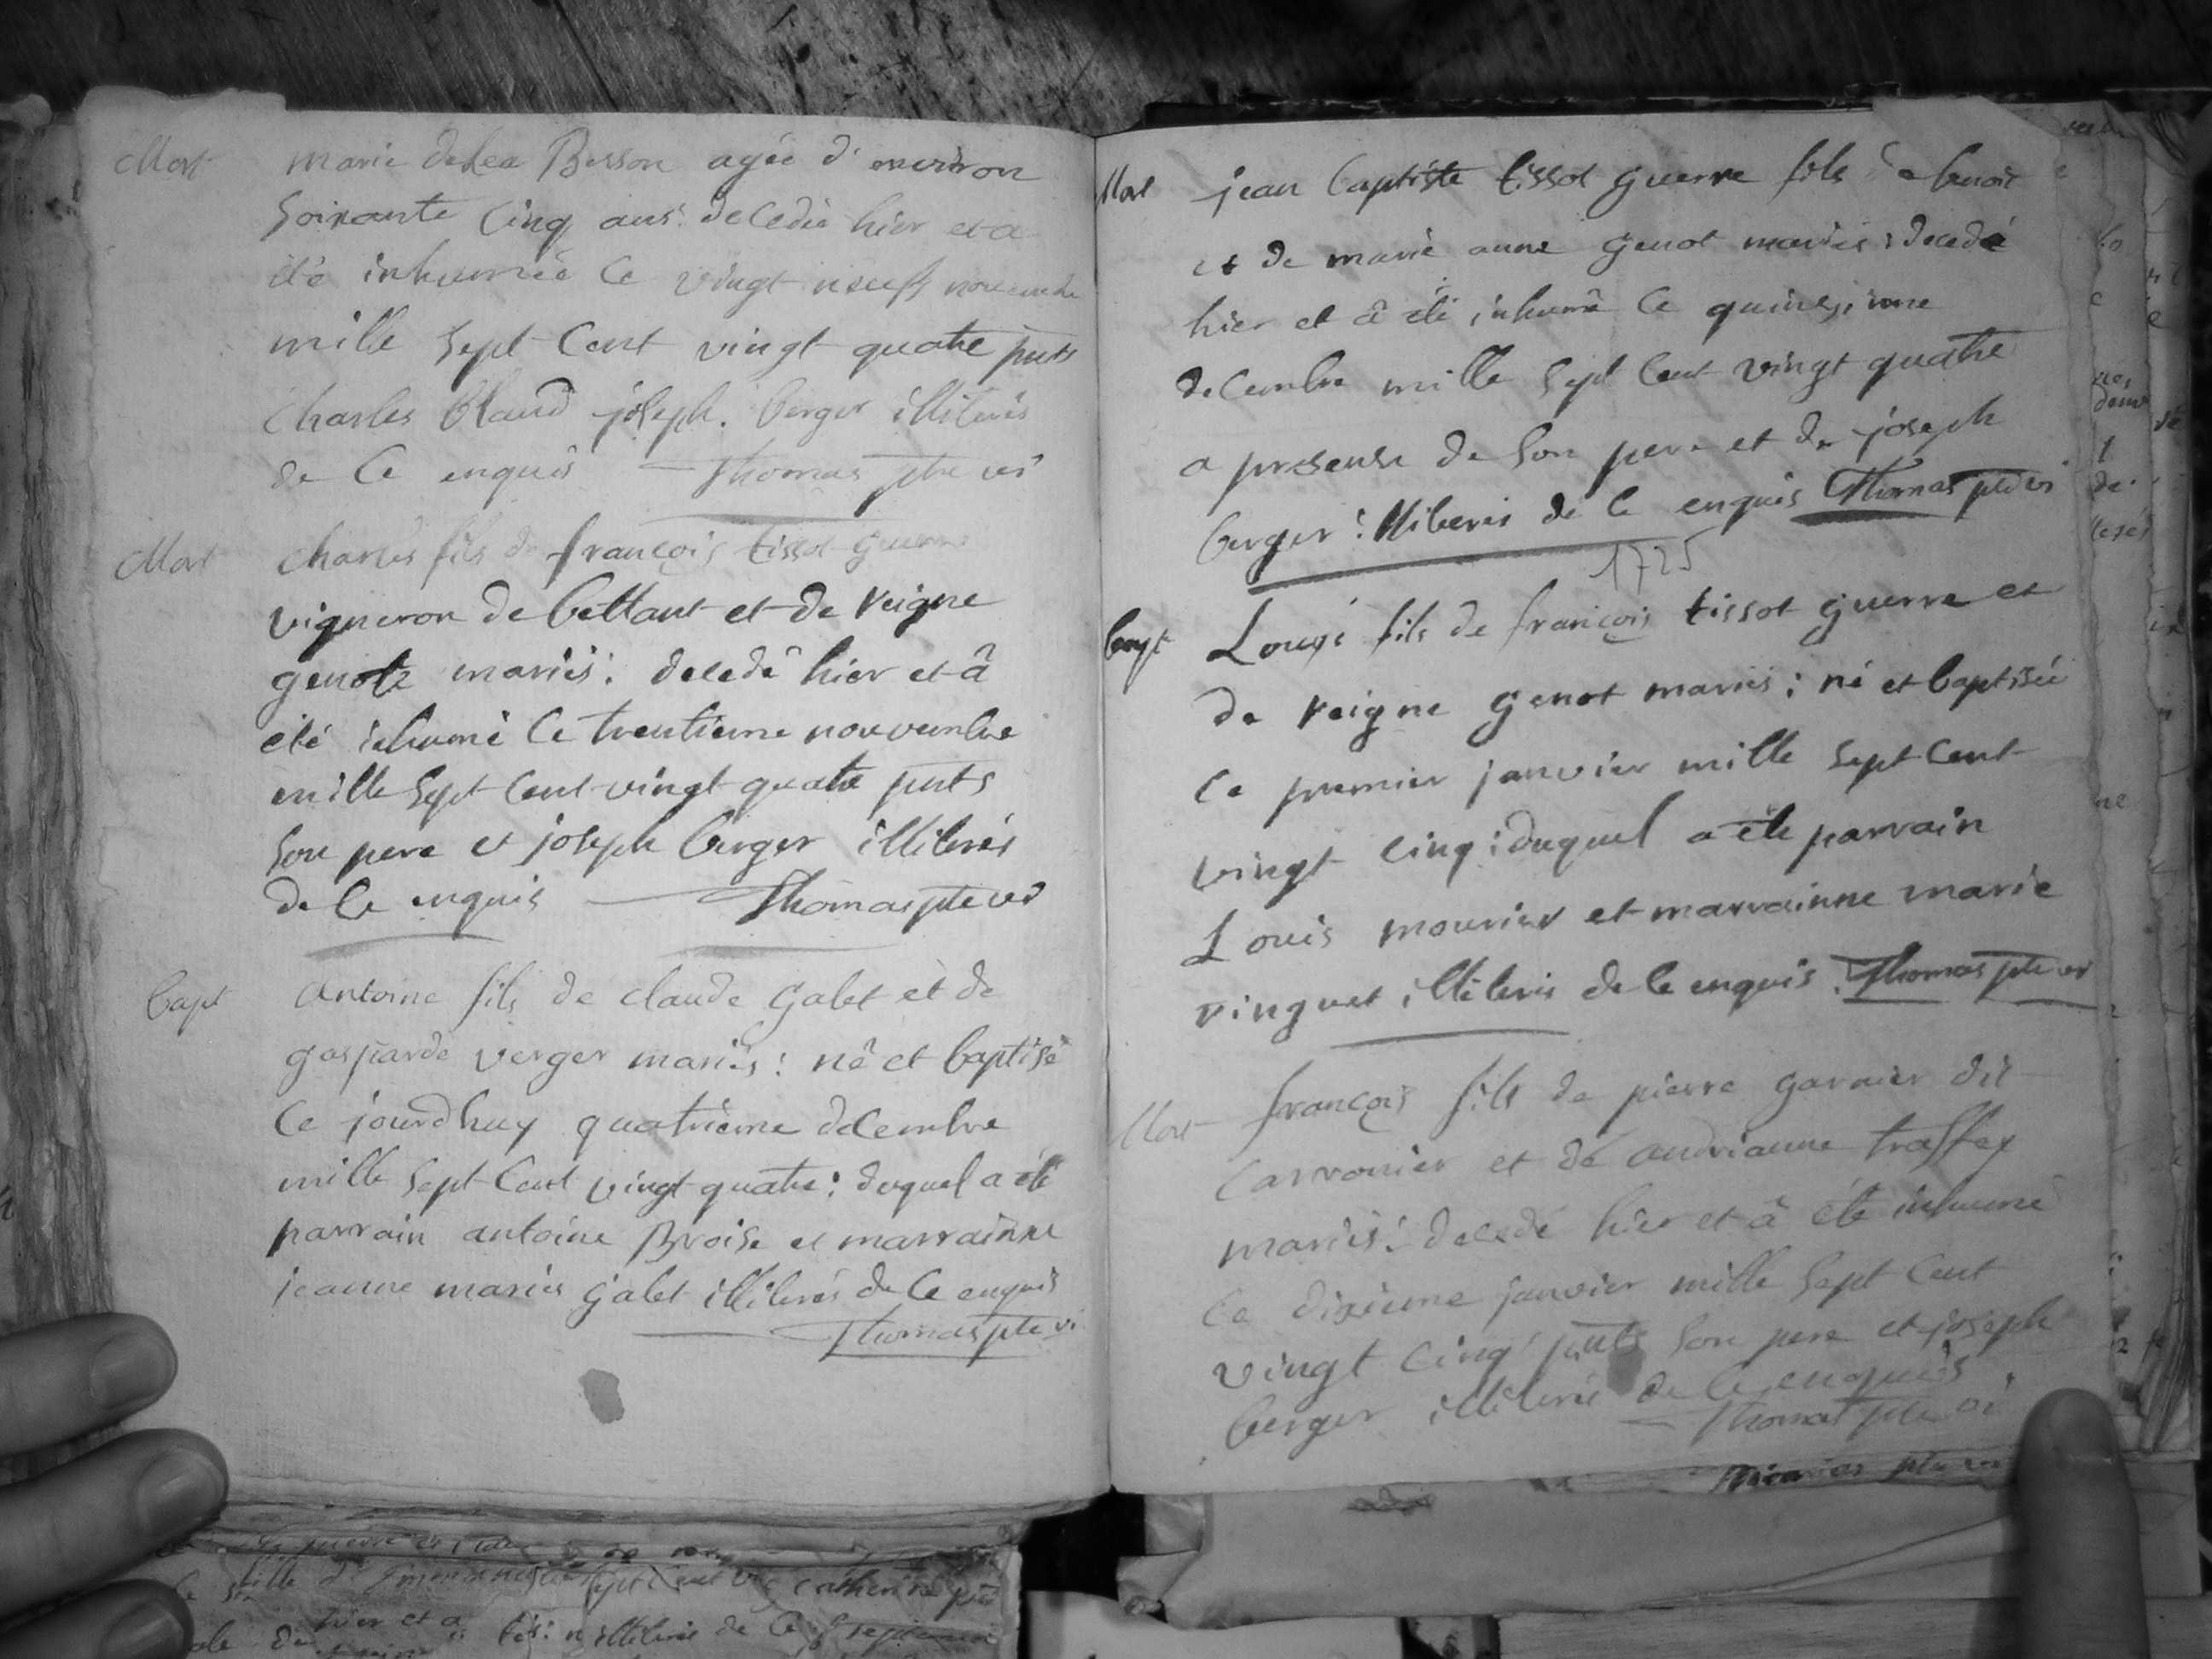 Mort marie delea Besson agée d'environ
soixante cinq ans: decedée hier et a
été inhumée ce vingt neufs novembre
mille sept cent vingt quatre pnts
charles blaud joseph berger illiterés
de ce enquis Thomas ptre vi
Mort charles fils de françois tissot guerre
vigneron de bettant et de reigne
genot mariés: decedé hier et â
été inhumé le trentieme nouvembre
mille sept cent vingt quatre pnts
son pere et joseph berger illiterés
de ce enquis Thomas ptre vi
bapt antoine fils de claude galet et de
gasparde verger mariés: né et baptisé
ce jourdhuy quatrième decembre
mille sept cent vingt quatre: duquel a été
parrain antoine Broise et marrainne
jeanne marie galet illiterés de ce enquis
Thomas ptre vi
Mort jean baptiste tissot guerre fils de benoit
et de marie anne genot mariés: decedé
hier et â été inhumé le quinzieme
decembre mille sept cent vingt quatre
a presense de son pere et de joseph
berger: illiterés de ce enquis Thomas ptre vi
1725
bapt Louys fils de françois tissot guerre et
de reigne genot mariés: né et baptisée
le premier janvier mille sept cent
vingt cinq: duquel a été parrain
Louis mourier et marrainne marie
vinguet illiterés de ce enquis. Thomas ptre vi
Mort françois fils de pierre garnier dit
carronier et de andrianne traffay
mariés: decedé hier et â été inhumé
le dixieme janvier mille sept cent
vingt cinq pnts son pere et joseph
berger illiteré de ce enquis
Thomas ptre vi